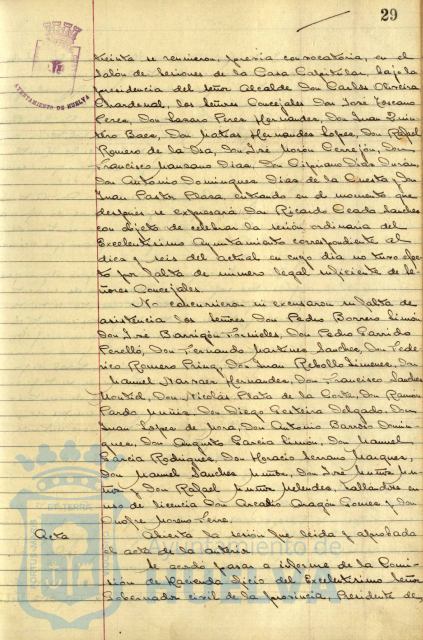 29
AYUNTAMIENTO DE HUELVA
treinta se reunieron, previa convocatoria, en el
Salón de Sesiones de la Casa Capitular, bajo la
presidencia del señor Alcalde Don Carlos Oliveira
Chardenal, los señores Concejales Don José Toscano
Perez, Don Lazaro Perez Hernandez, Don Juan Quin-
tero Baez, Don Matias Hernandez Lopez, Don Rafael
Romero de la Don José Morón Cerrejón, Don
Francisco Manzano Dias, Don Cipriano Dias Duran,
Don Antonio Dominguez Dias de la Cuesta y Don
Juan Pastor Baza, entrando en el momento que
despues se expresará Don Ricardo Sanchez
con objeto de celebrar la sesión ordinaria del
Excelentisimo Ayuntamiento correspondiente al
diez y seis del actual en cuyo dia no tuvo efec-
to por falta de número legal suficiente de se-
ñores Concejales.
No concurrieron ni excusaron su falta de
asistencia los señores Don Pedro Borrero Limón
Don José Barrigón Fornieles, Don Pedro Garrido
Perelló, Don Fernando Martinez Sanchez, Don Fede-
rico Romero Don Juan Rebollo Jimenez, Don
Manuel Narvaez Hernandez, Don Francisco Sanchez
Montiel, Don Nicolás Plata de la Corte, Don Ramon
Pardo Don Diego Delgado, Don
Juan Lopez de Mora, Don Antonio Barroso Domin-
guez, Don Augusto Garcia Limón, Don Manuel
Garcia Rodriguez, Don Horacio Serrano Marquez,
Don Manuel Sanchez Don José Muñoz Mu-
ñoz y Don Rafael Muñoz Melendez, hallandose en
uso de licencia Don Arcadio Aragón Gomez y Don
Onofre Moreno
Acta Abierta la sesión fue leida y aprobada
el acta de la anterior.
Se acordó pasar a informe de la Comi-
sión de Hacienda oficio del Excelentisimo Señor
Gobernador civil de la provincia, Presidente de